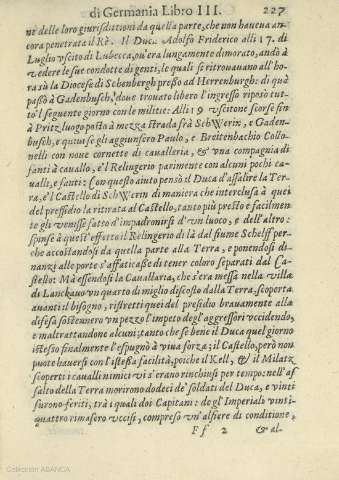 di Germania Libro III. 227
ni delle loro giurisdittioni da quella parte, che non haueua an-
cora penetrata il Rè. Il Duca Adolfo Friderico alli 17. di
Luglio vscito di Lubecca, ou'era lungamente dimorato, andò à
vedere le sue condotte di genti, le quali si ritrouauano all'ho-
ra sù la Diocese di Schenbergh presso ad Herrenburgh: di quà
passò à Gadenbusch, doue trouato libero l'ingresso riposò tut-
to'l seguente giorno con le militie: Alli 19 vscitone scorse fin
à Pritz luogo posto à mezza strada frà SchWerin, e Gaden-
busch, e quiui se gli aggiunsero Paulo, e Breitenbachio Collo-
nelli con noue cornette di cauallería, & vna compagnia di
fanti à cauallo, e'l Relingerio parimente con alcuni pochi ca-
ualli, e fanti: Con questo aiuto pensò il Duca d'assalire la Ter-
ra, e'l Castello di SchWerin di maniera che interclusa à quei
del pressidio la ritirata al Castello, tanto più presto e facilmen-
te gli venisse fatto d'impadronirsi d'vn luoco, e dell'altro:
spinse à quest'effetto il Relingerio di là dal fiume Schelff per-
che accostandosi da quella parte alla Terra, e ponendosi di-
nanzi alle porte s'affaticasse di tener coloro separati dal Ca-
stello: Mà essendosi la Cauallaria, che s'era messa nella villa
di Lanckauo vn quarto di miglio discosto dalla Terra, scoperta
auanti il bisogno, ristretti quei del presidio brauamente alla
difesa sostennero vn pezzo l'impeto degl'aggressori vccidendo,
e maltrattandone alcuni; tanto che se bene il Duca quel giorno
istesso finalmente l'espugnò à viua forza; il Castello, però non
puote hauersi con l'istessa facilità, poiche il Kell, & il Milatz
scoperti i caualli nimici vi s'erano rinchiusi per tempo: nell'as
salto della Terra morirono dodeci de' soldati del Duca, e vinti
furono feriti, trà i quali doi Capitani: de gl'Imperiali vinti-
quattro rimasero vccisi, compreso vn'alfiere di conditione,
Ff 2 & al-
Colección ABANCA